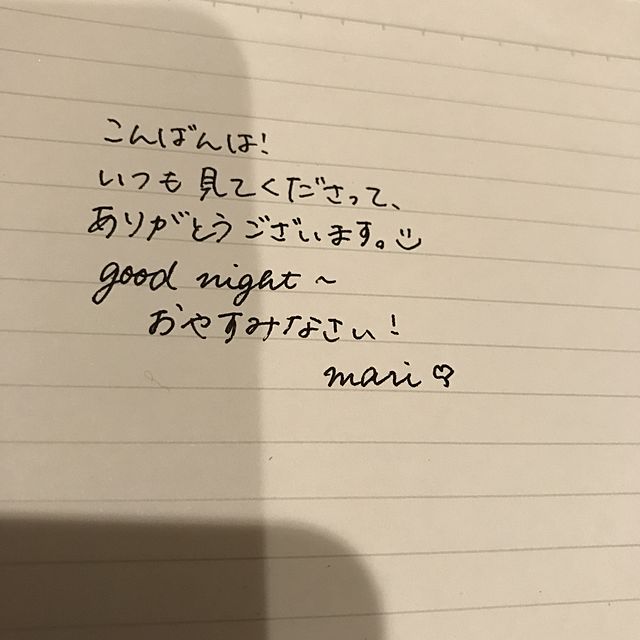 こんばんは!
いつも見てくださって、
ありがとうございます。
good night ~
おやすみなさい!
mari ♡